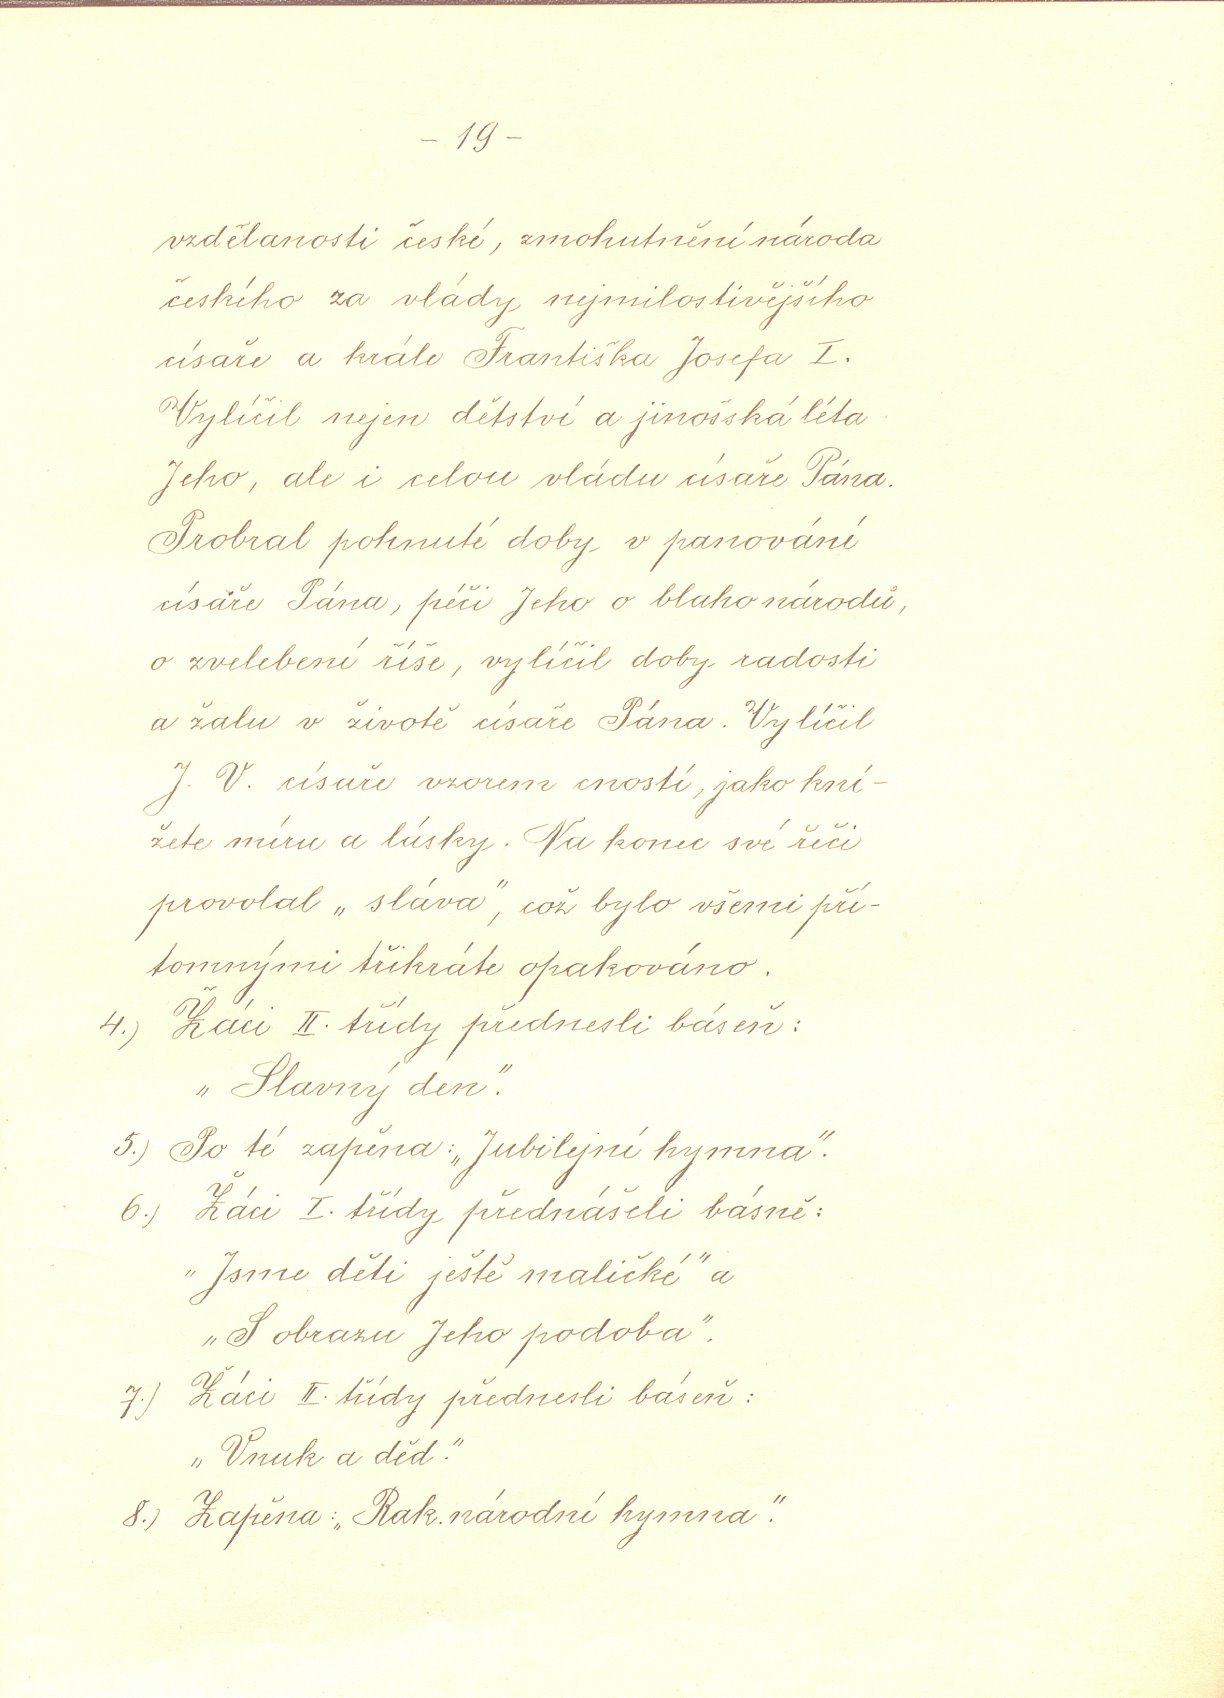 – 19 –
vzdělanosti české, zmohutnění národa
českého za vlády nejmilostivějšího
císaře a krále Františka Josefa I.
Vylíčil nejen dětství a jinošská léta
Jeho, ale i celou vládu císaře Pána.
Probral pohnuté doby v panování
císáře Pána, péči Jeho o blaho národů,
o zvelebení říše, vylíčil doby radosti
a žalu v životě císaře Pána. Vylíčil
J. V. císaře vzorem cností, jako kní-
žete míru a lásky. Na konec své řeči
provolal „sláva", což bylo všemi pří-
tomnými třikráte opakováno.
4.) Žáci II. třídy přednesli báseň:
„Slavný den".
5.) Po té zapěna: „Jubilejní hymna".
6.) Žáci I. třídy přednášeli básně:
„Jsme děti ještě maličké" a
„S obrazu Jeho podoba".
7.) Žáci II. třídy přednesli báseň:
„Vnuk a děd."
8.) Zapěna: „Rak. národní hymna".